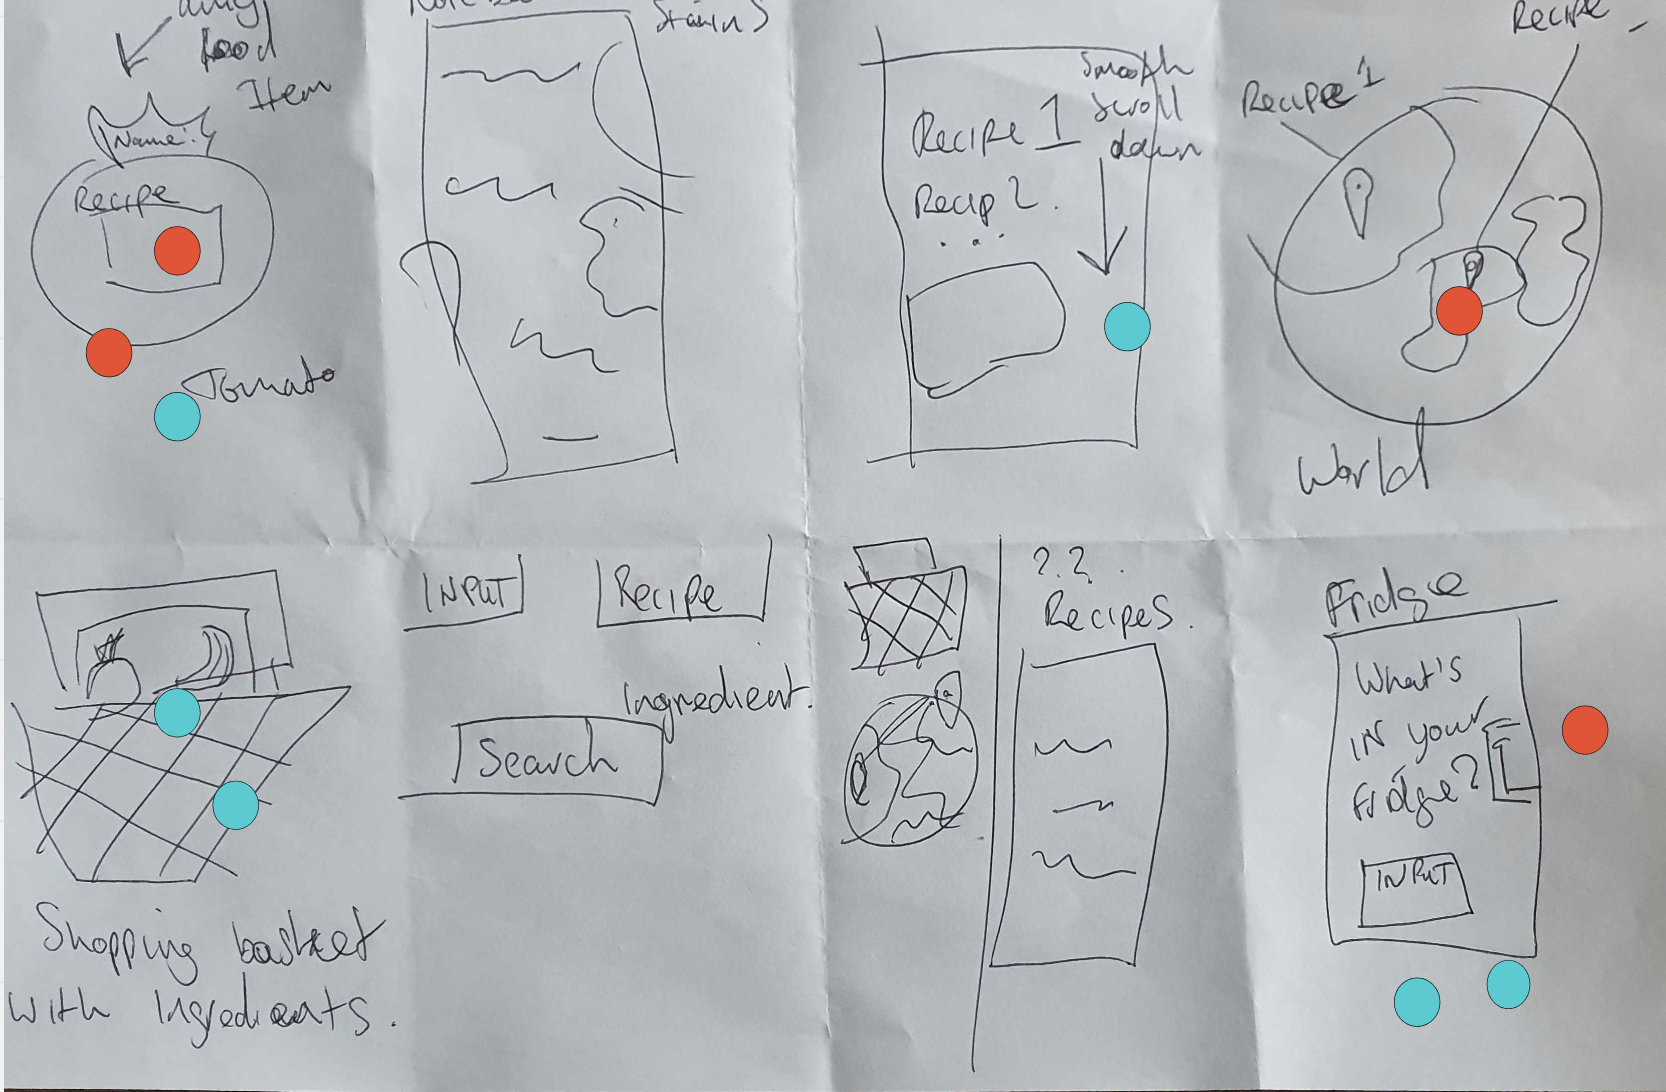 food
Item
Name!
Recipe
Tomato
Stains
Recipe 1
Recip 2.
...
Smooth
scroll
down
Recipe 1
Recipe
World
Shopping basket
with Ingredients.
INPUT
Recipe
Ingredient.
Search
? ? .
Recipes.
Fridge
What's
IN your
fridge?
INPUT